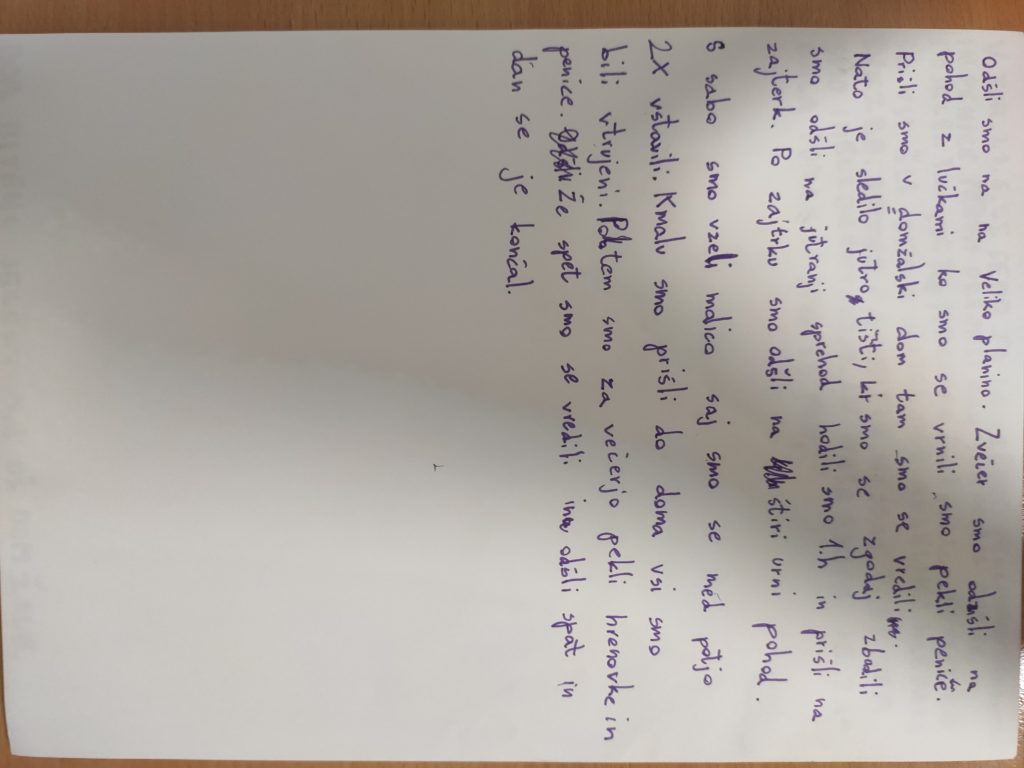 Odšli smo na na Veliko planino. Zvečer smo odšli na
pohod z lučkami ko smo se vrnili smo pekli penice.
Prišli smo v domžalski dom tam smo se vredili.
Nato je sledilo jutro, tišti, kr smo se zgodaj zbudili
smo odšli na jutranji sprehod hodili smo 1.h in prišli na
zajterk. Po zajtrku smo odšli na štiri urni pohod.
S sabo smo vzeli malico saj smo se med potjo
2x vstavili. Kmalu smo prišli do doma vsi smo
bili vtrujeni. Potem smo za večerjo pekli hrenovke in
penice. Že spet smo se vredili in odšli spat in
dan se je končal.